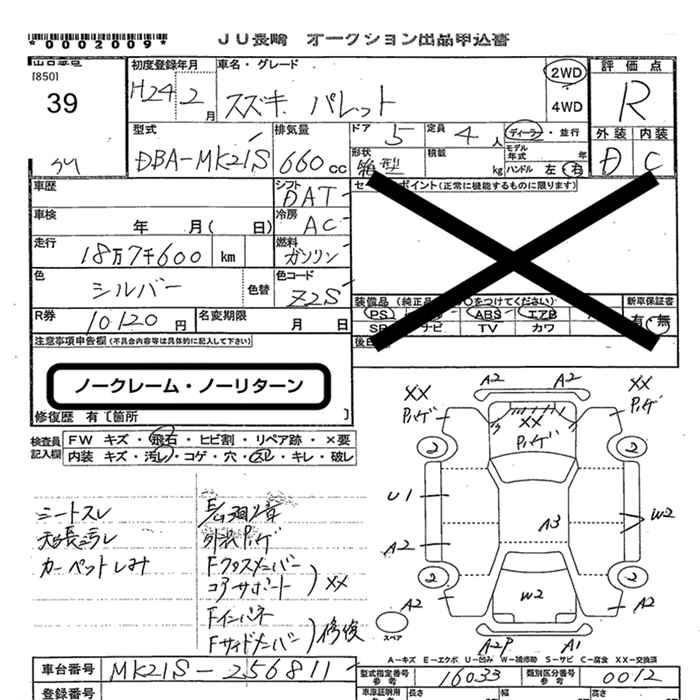 *0002009*
JU長崎 オークション出品申込書
[850]
39
初度登録年月
H24 2月
車名・グレード
スズキ パレット
2WD
4WD
評価点
R
外装 内装
D C
型式
DBA-MK21S
排気量
660cc
ドア 5
定員 4人
形状
箱型
積載 kg
ディーラー・並行
モデル年式 年
ハンドル 左・右
車歴
シフト
DAT
車検 年 月( 日)
冷房
AC
走行
18万7千600 km
燃料
ガソリン
色
シルバー
色替
色コード
Z2S
R券
10120円
名変期限 月 日
(正常に機能するものに限ります)
装備品
PS
ABS
エアB
TV
カワ
新車保証書
有・無
注意事項申告欄(不具合内容等は具体的に記入して下さい)
ノークレーム・ノーリターン
修復歴 有〔箇所 〕
検査員記入欄
FW キズ・飛石・ヒビ割・リペア跡・×要
内装 キズ・汚レ・コゲ・穴・スレ・キレ・破レ
シートスレ
天張汚レ
カーペットしみ
外装パンゲ
Fクロスメンバー
コアサポート
XX
Fインパネ
Fサイドメンバー
修復
XX
A2
A2
XX
XX
2
2
U1
A2
A3
W2
2
2
A2
W2
A2
スペア
A2P
A1
A-キズ E-エクボ U-凹み W-補修跡 S-サビ C-腐食 XX-交換済
車台番号
MK21S-256811
型式指定番号
参考
16033
類別区分番号
参考
0012
登録番号
長さ
幅
高さ